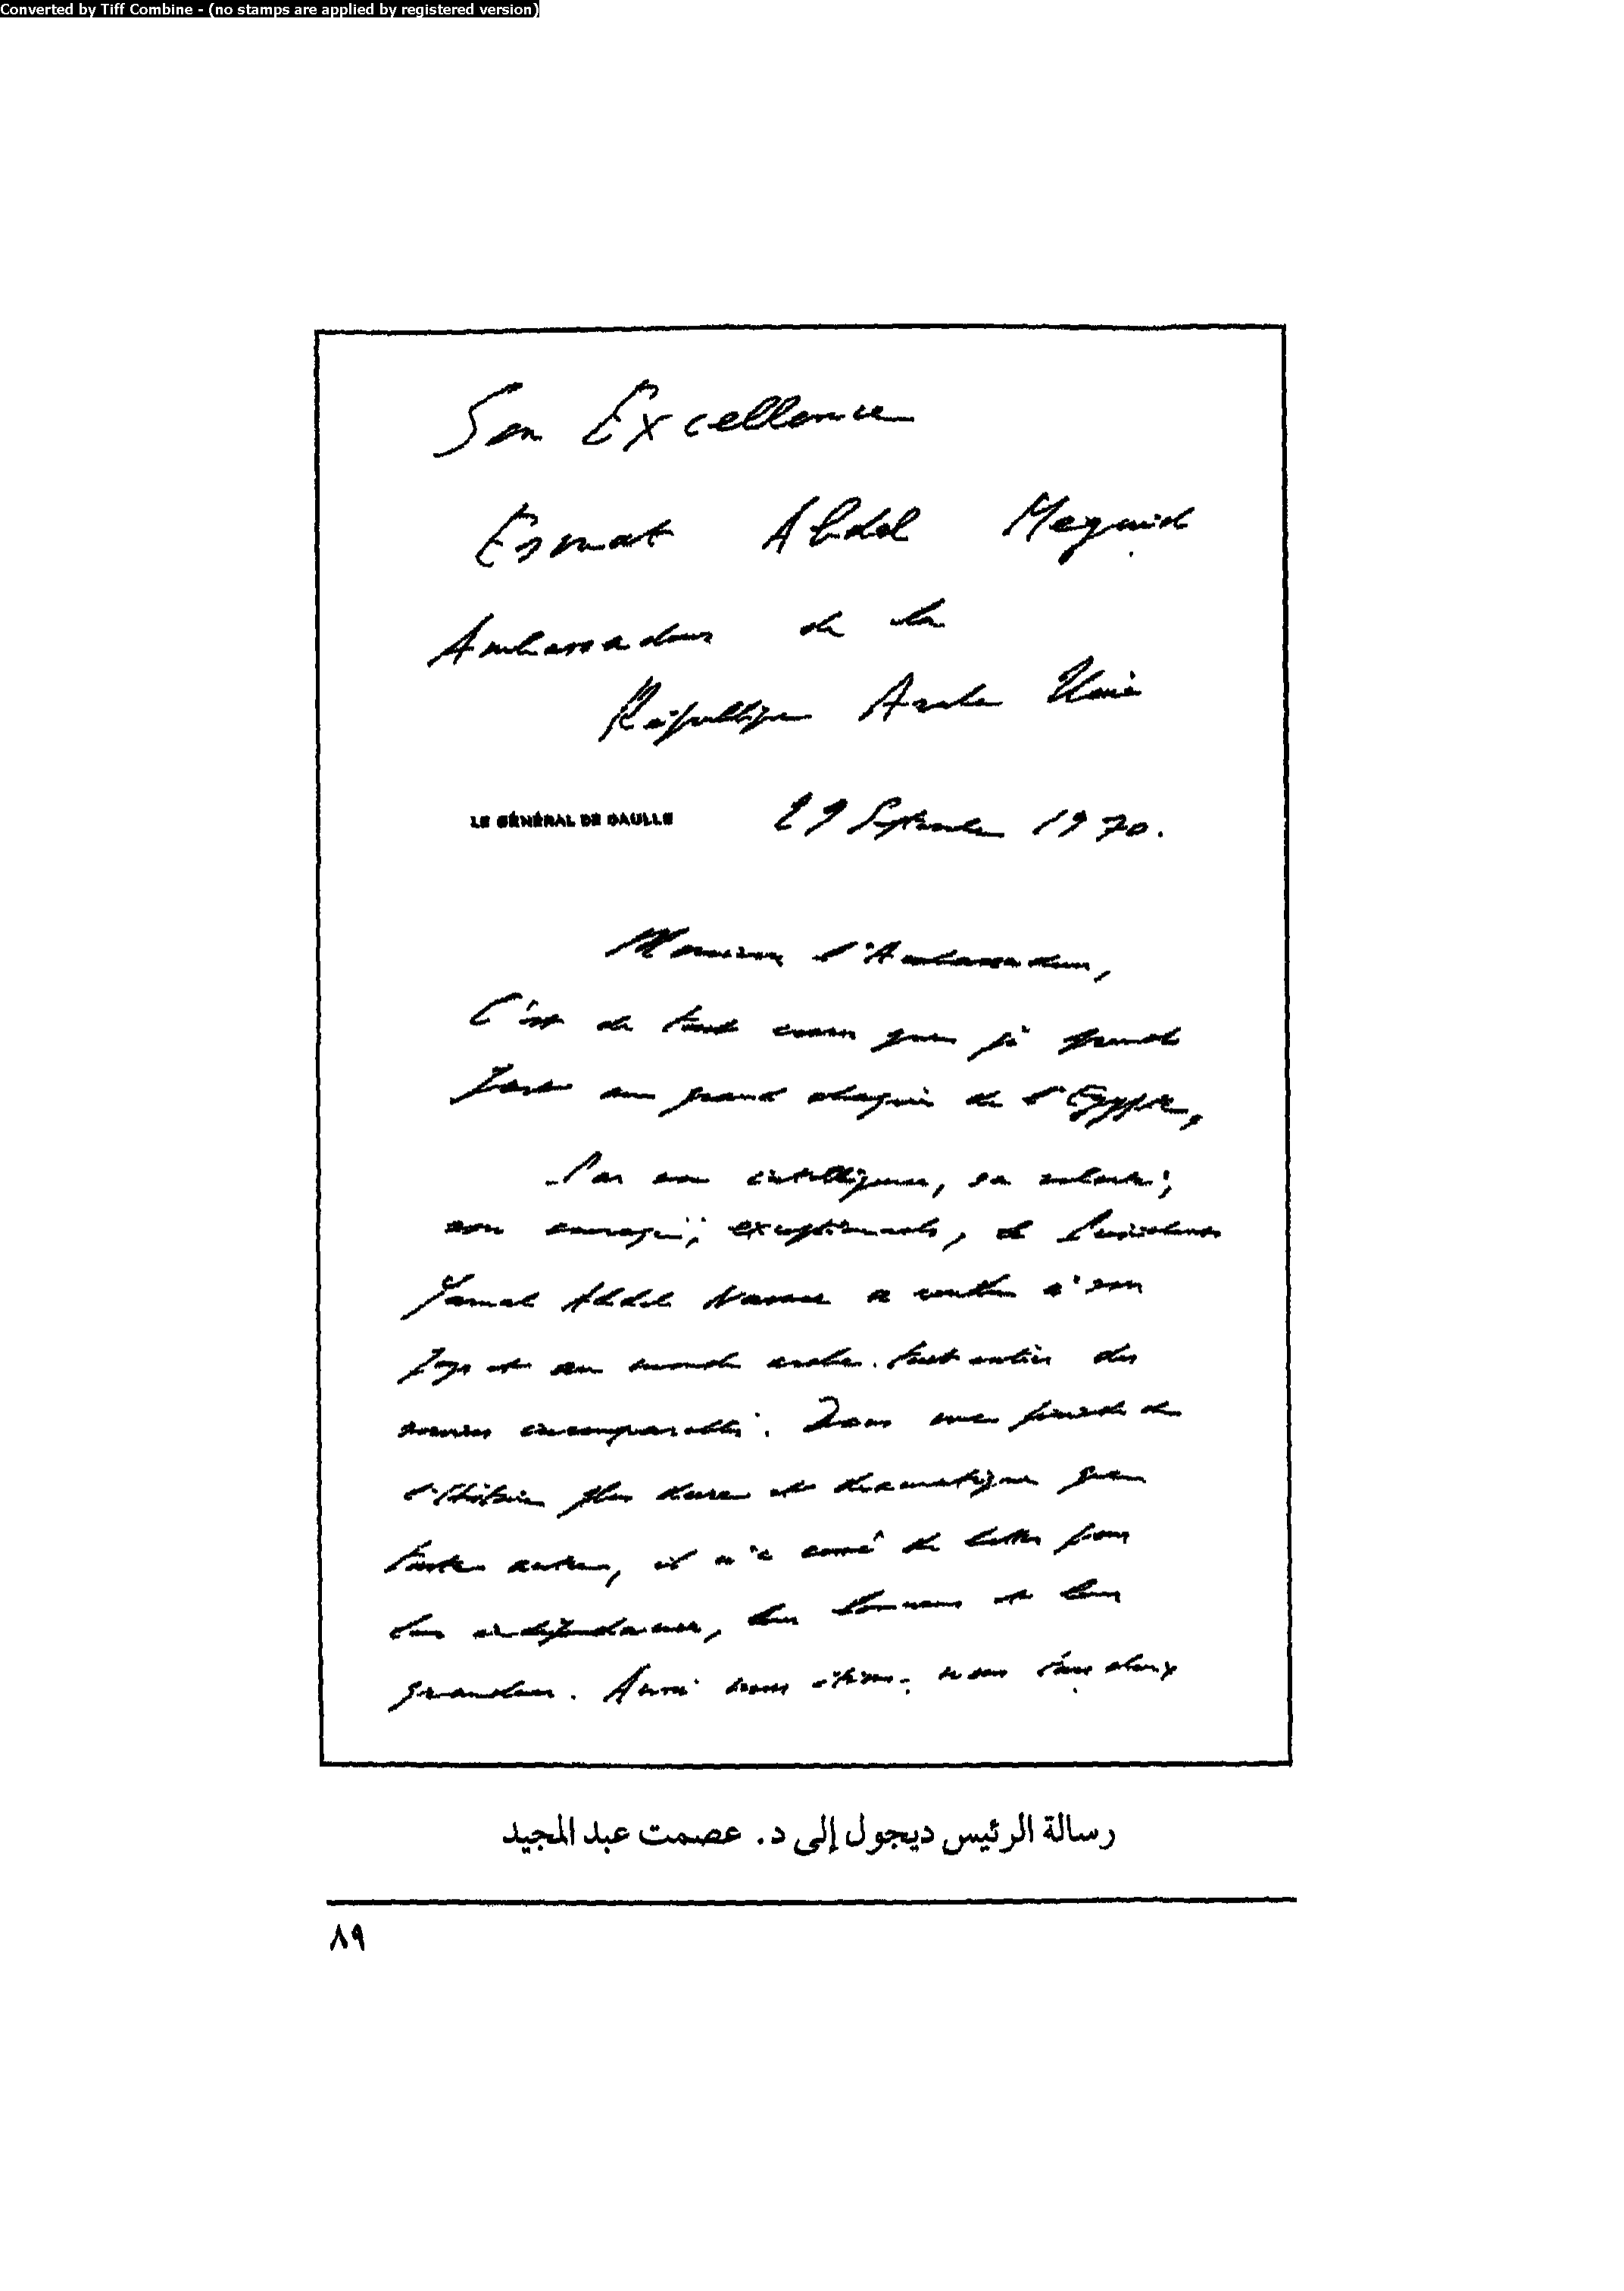 Converted by Tiff Combine - (no stamps are applied by registered version)
Son Excellence
Esmat Abdel Meguid
Ambassadeur de la
République Arabe Unie
LE GÉNÉRAL DE GAULLE 29 Septembre 1970.
Monsieur l'Ambassadeur,
C'est de tout coeur que je prends
part au grand chagrin de l'Egypte,
Par son intelligence, sa volonté,
son courage, exceptionnels, le Président
Gamal Abdel Nasser a rendu à son
pays et au monde arabe tout entier des
services incomparables. Dans une période de
l'Histoire plus dure et dramatique que
toute autre, il n'a cessé de lutter pour
leur indépendance, leur honneur et leur
grandeur. Aussi nous étions-nous tous deux
رسالة الرئيس ديجول إلى د. عصمت عبد المجيد
٨٩